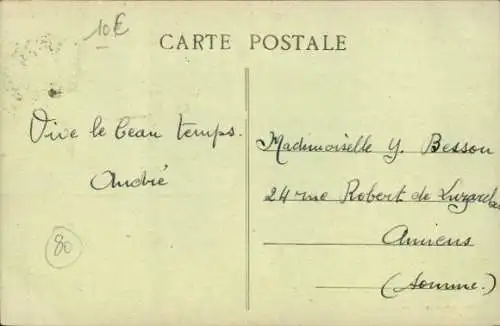 10€
CARTE POSTALE
Vive le beau temps.
André
80
Mademoiselle Y. Besson
24 rue Robert de Luzarches
Amiens
(Somme.)